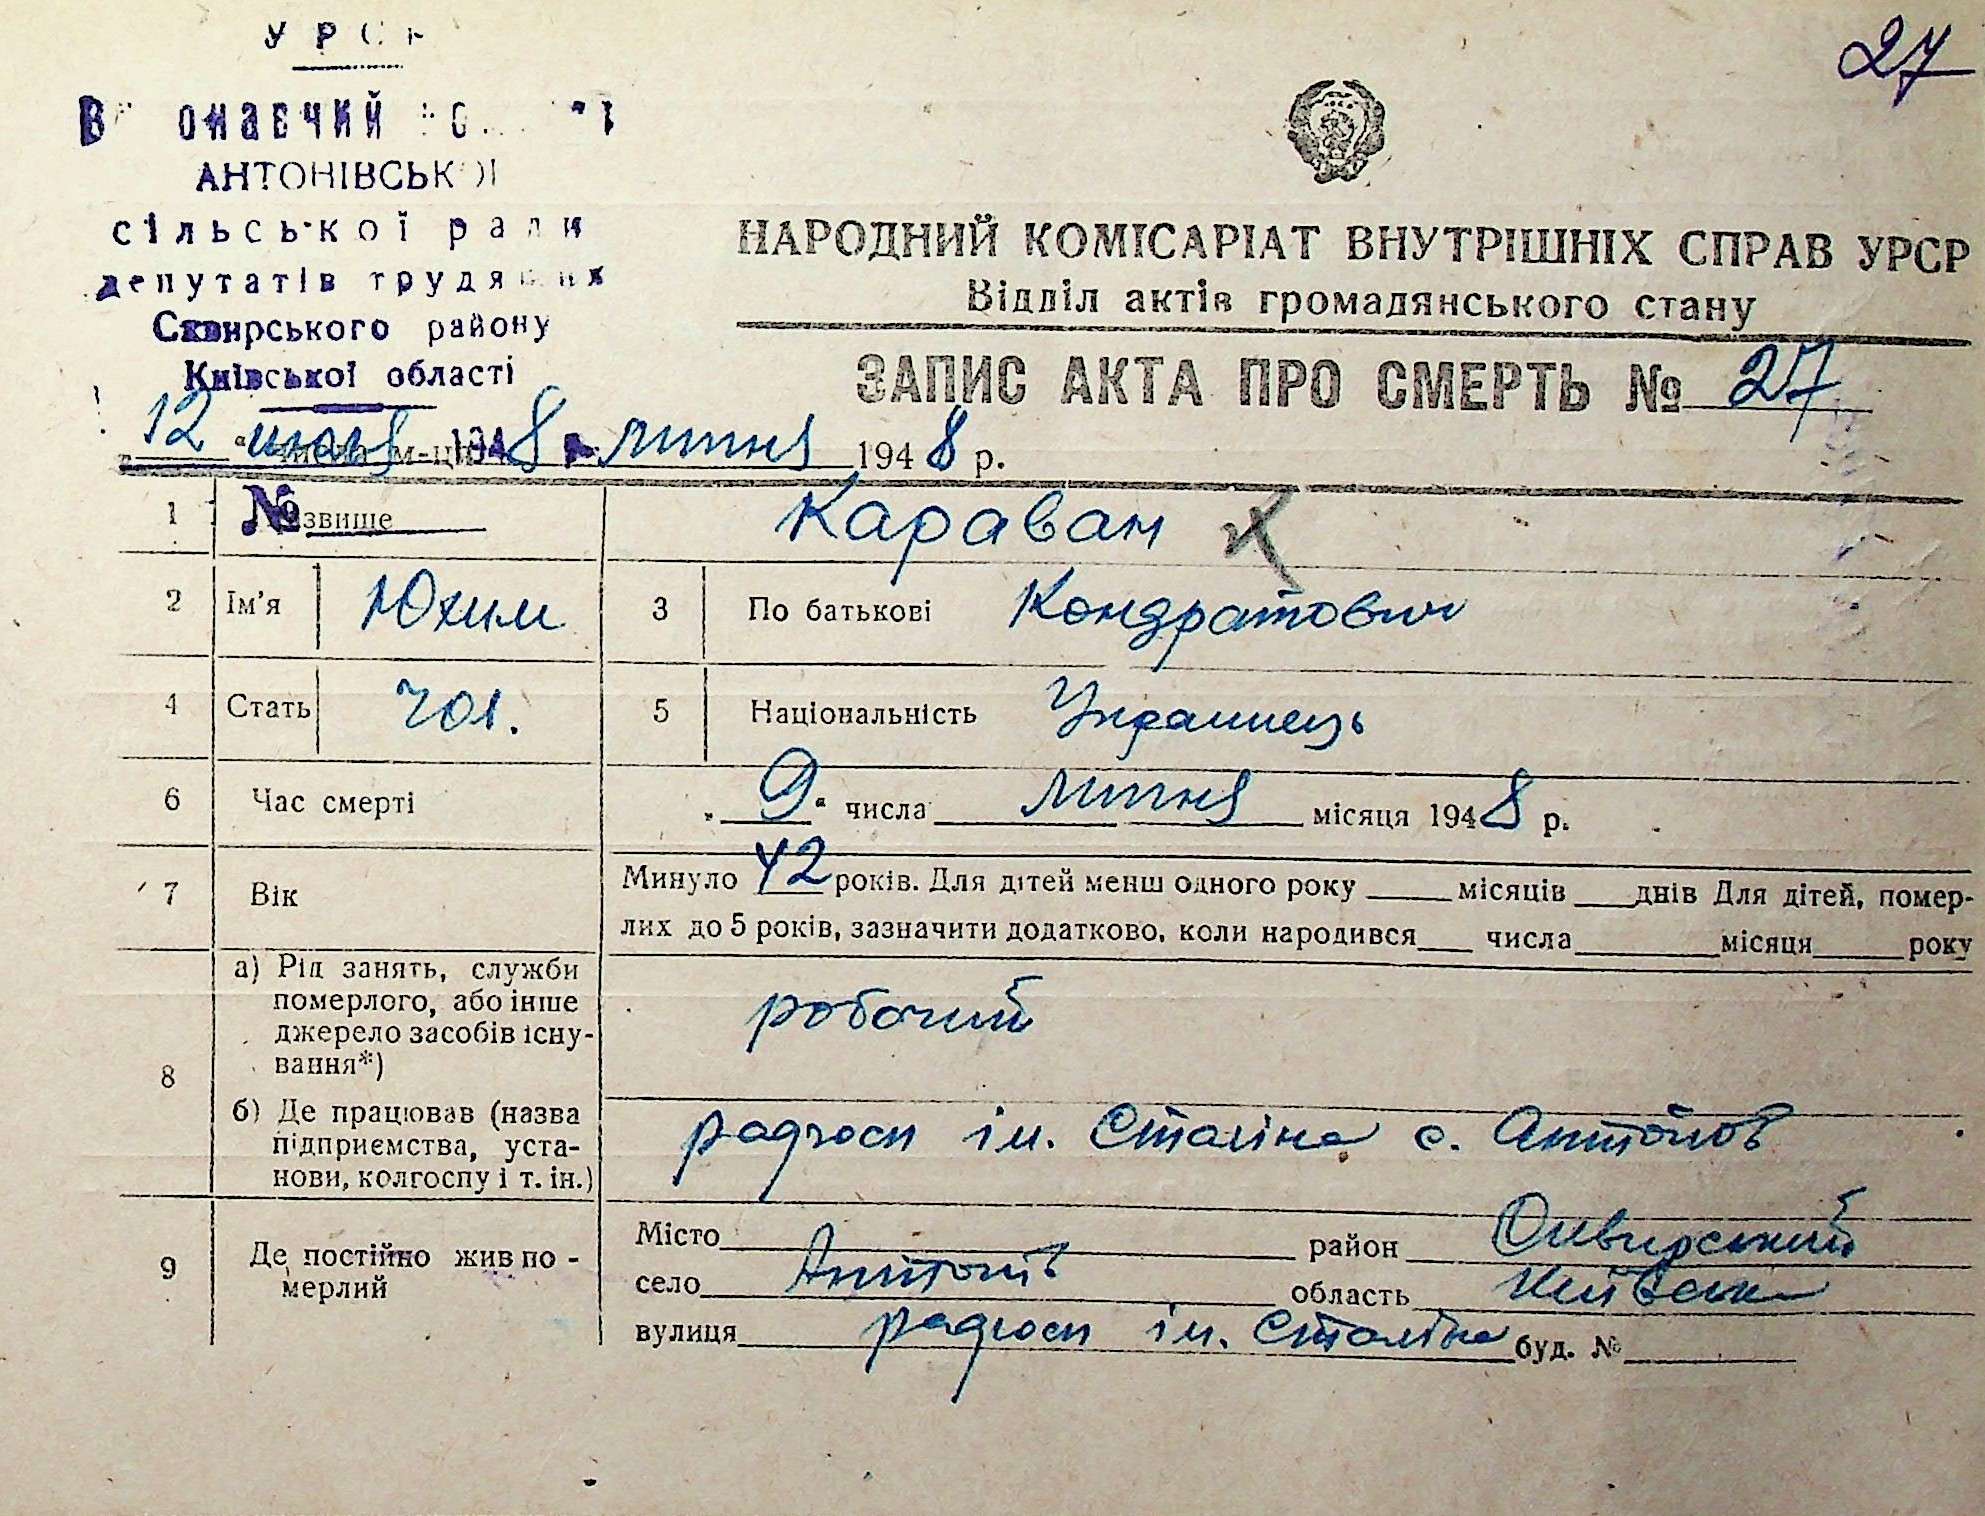 27
УРСР
Виконавчий комітет
АНТОНІВСЬКОЇ
сільської ради
депутатів трудящих
Сквирського району
Київської області
НАРОДНИЙ КОМІСАРІАТ ВНУТРІШНІХ СПРАВ УРСР
Відділ актів громадянського стану
ЗАПИС АКТА ПРО СМЕРТЬ № 27
„12“ числа м-ця липня 1948 р.
июля 1948
№
1 Прізвище Караван
2 Ім'я Юхим 3 По батькові Кондратович
4 Стать чол. 5 Національність Українець
6 Час смерті „9“ числа липня місяця 1948 р.
7 Вік Минуло 42 років. Для дітей менш одного року ___ місяців ___ днів Для дітей, помер-
лих до 5 років, зазначити додатково, коли народився ___ числа ___ місяця ___ року
8 а) Рід занять, служби
померлого, або інше
джерело засобів існу-
вання*)
робочий
б) Де працював (назва
підприємства, уста-
нови, колгоспу і т. ін.)
радгосп ім. Сталіна с. Антонів
9 Де постійно жив по-
мерлий
Місто ___ район Сквирський
село Антонів область Київськ
вулиця радгосп ім. Сталіна буд. №